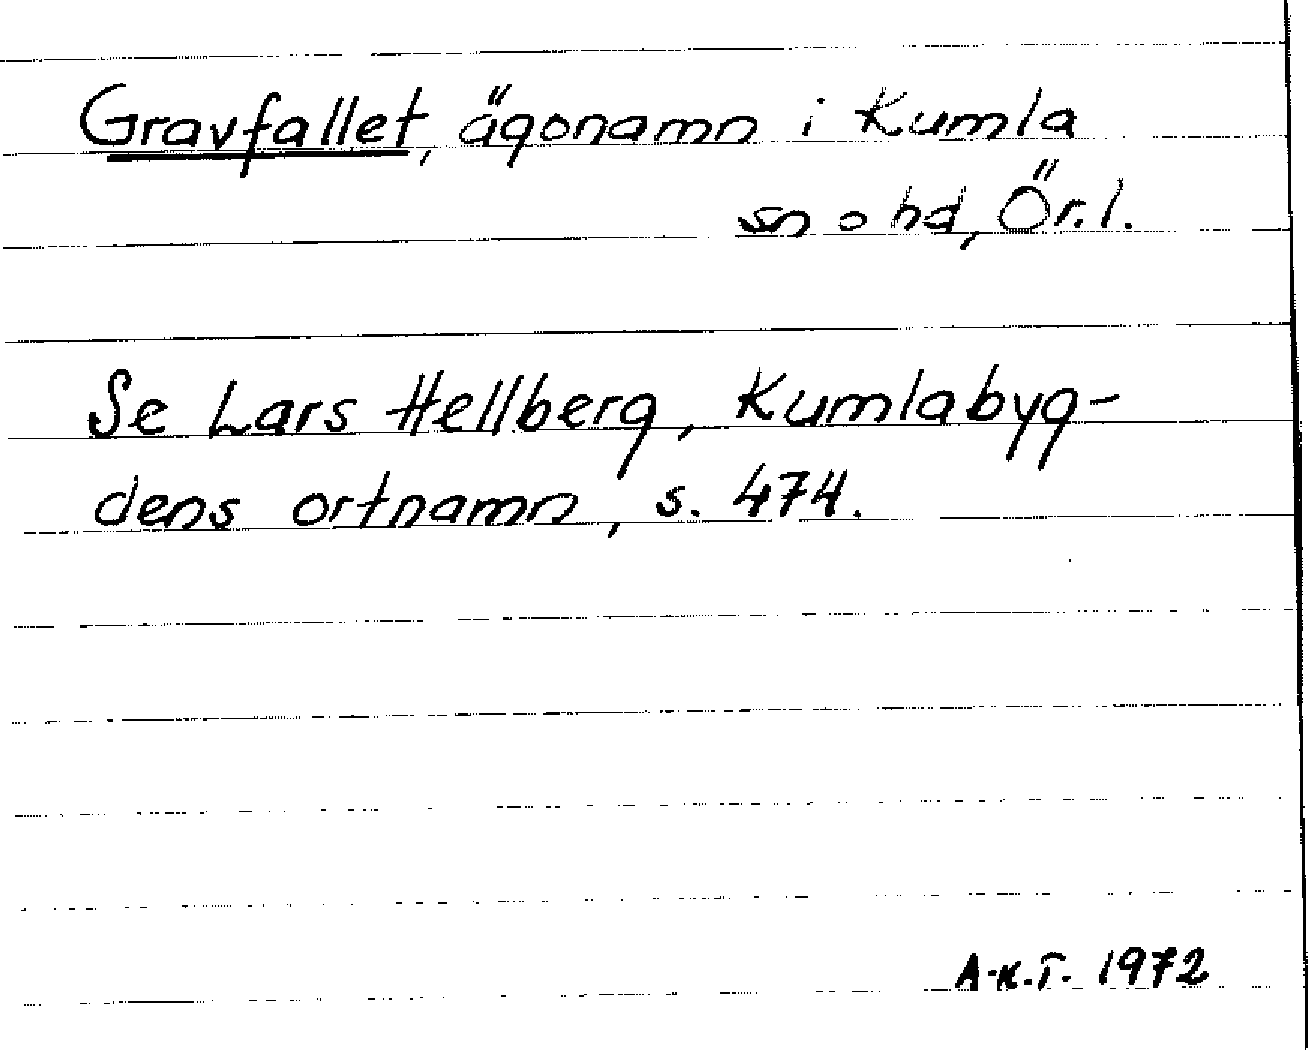 Gravfallet, ägonamn i Kumla
sn o hd, Ör.l.
Se Lars Hellberg, Kumlabyg-
dens ortnamn, s. 474.
A-K.T. 1972